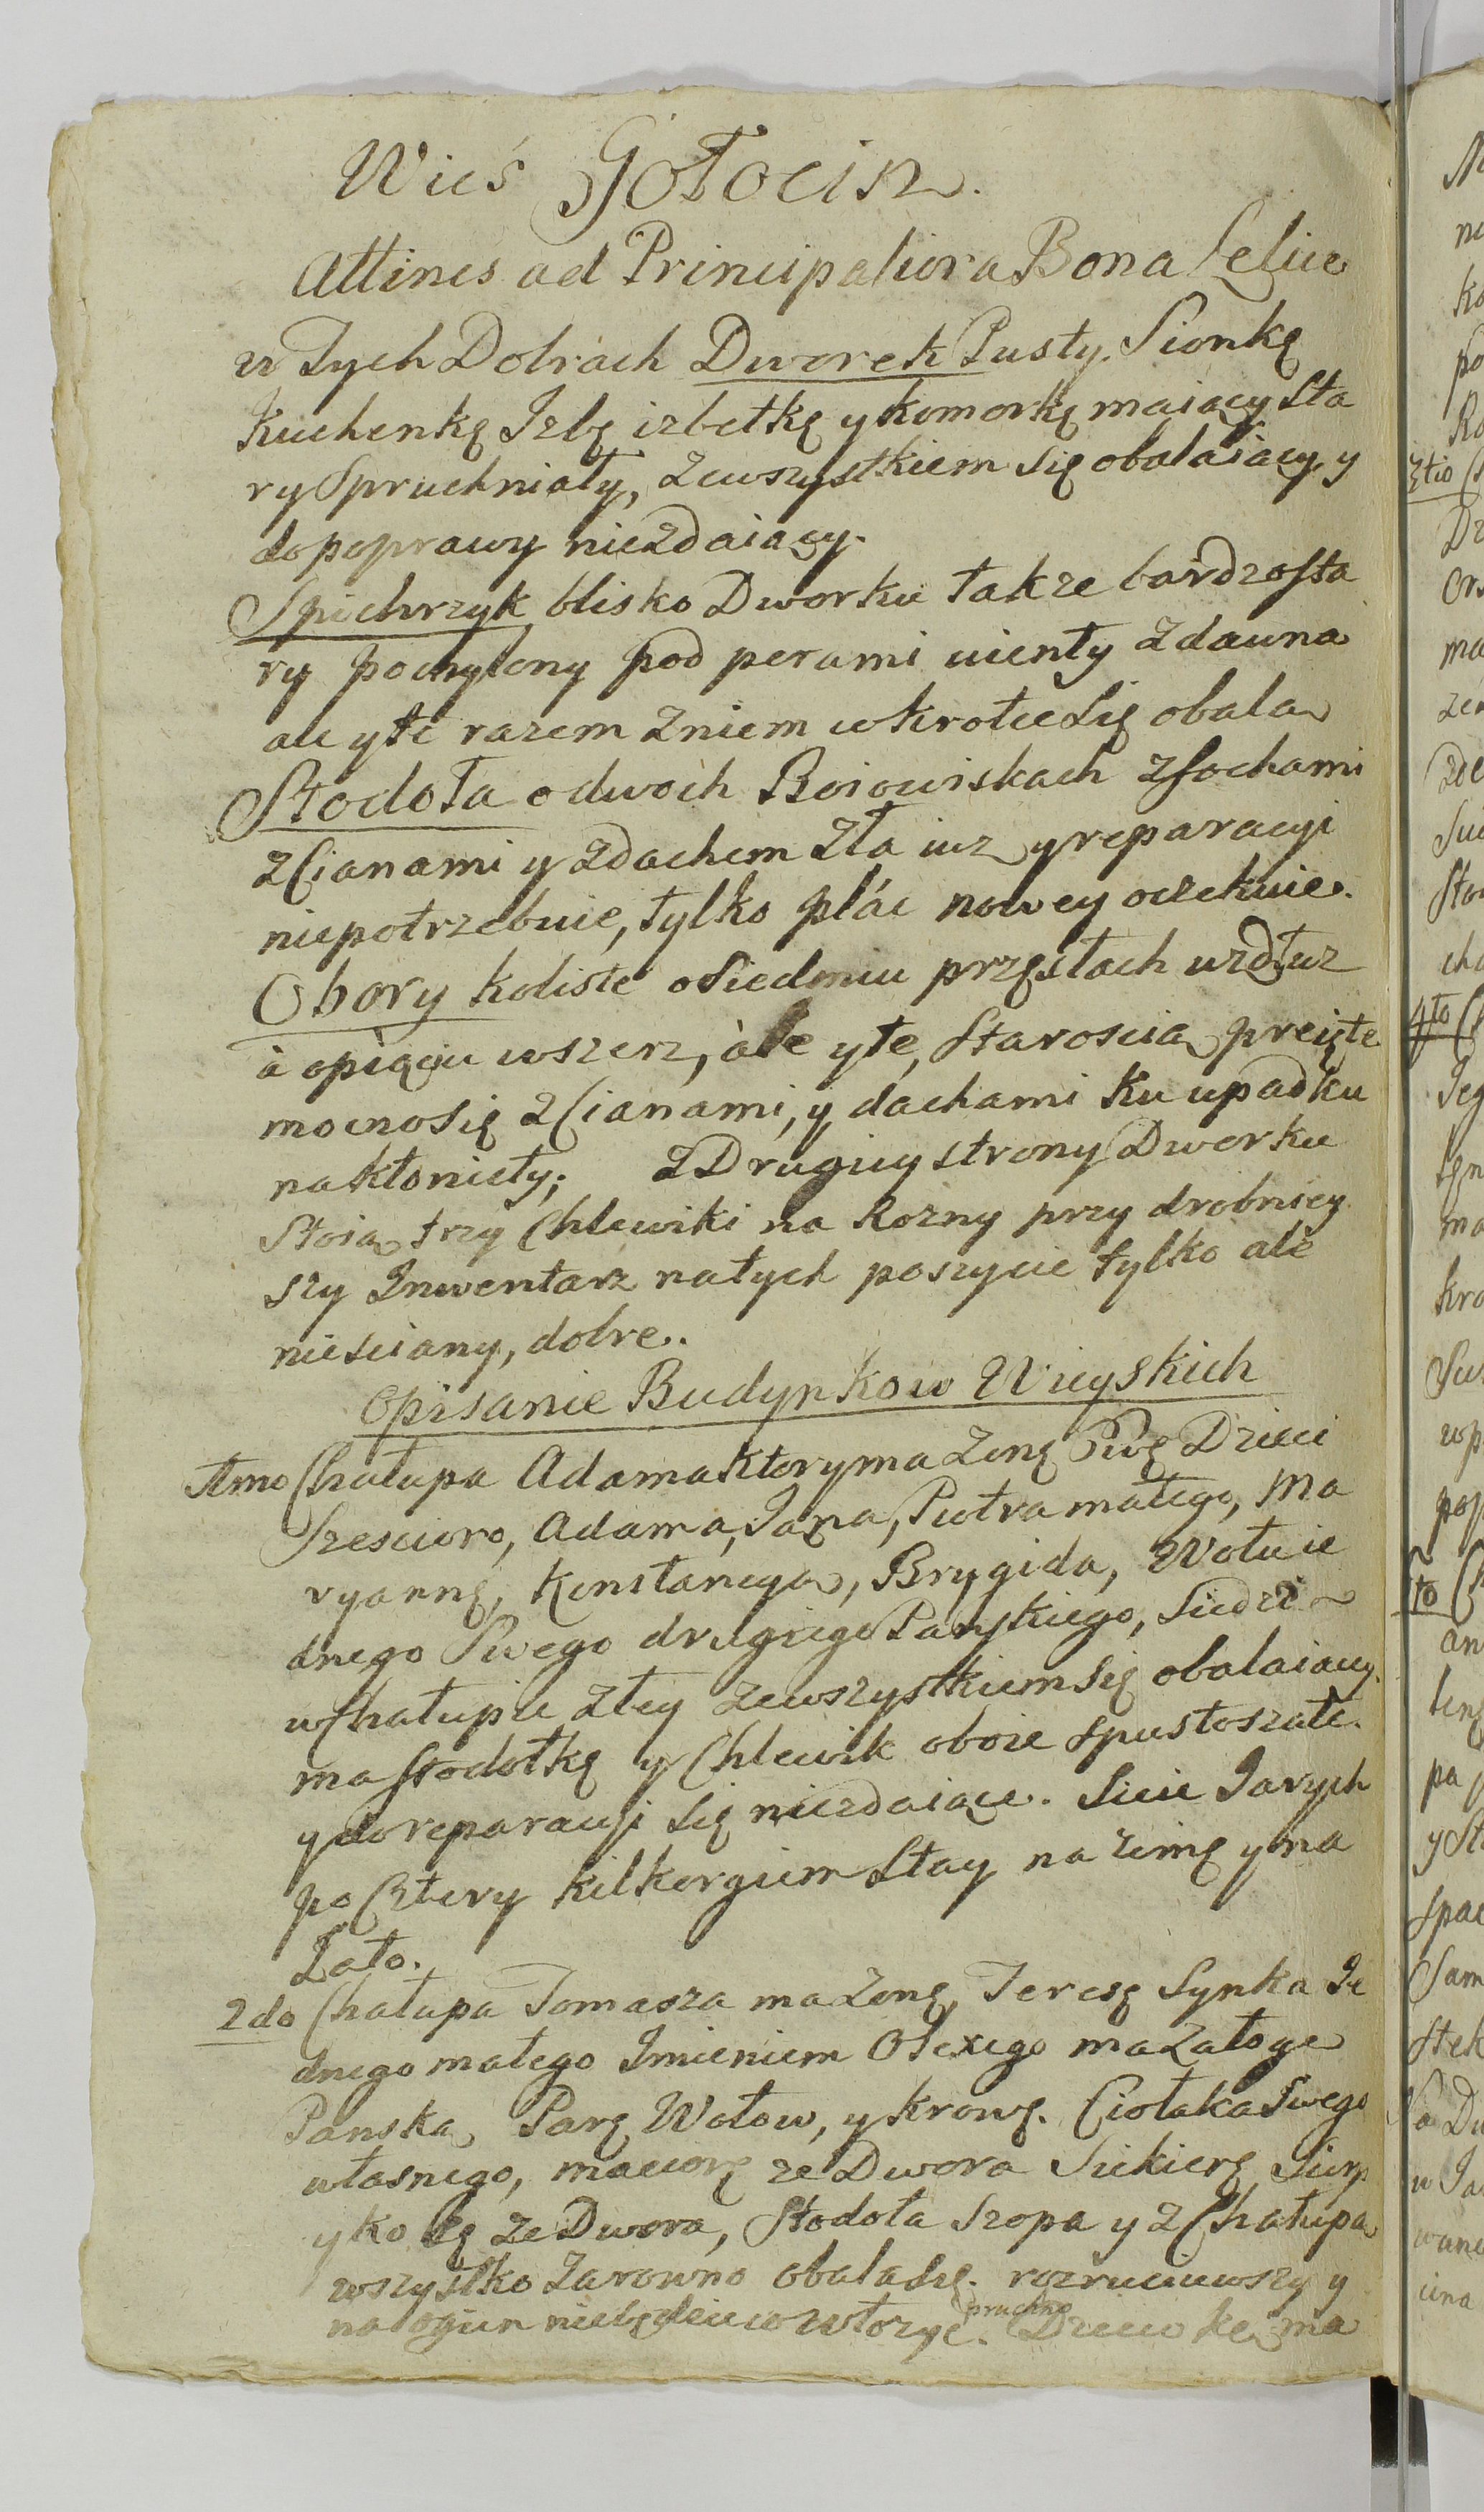 Wieś Gołocin.
Attines ad Principaliora Bona Lelice
w Tych Dobrach Dworek Pusty. Sionkę
Kuchenkę Izbę izbetkę y komorkę maiący sta
ry Spruchniały, zewszystkiem się obalaiący y
do poprawy niezdaiący.
Spichrzyk blisko Dworku także bardzo sta
ry pochylony pod perami uienty zdawna
ale yte razem zniem wkrotce się obala
Stodoła o dwoch Boiowiskach zsochami
zscianami y zdachem zła iuz y reparacyi
niepotrzebuie, tylko plác nowey oczekuie.
Obory koliste o Siedmiu przęsłach wzdłuz
à opięciu wszerz, àle yte, Staroscia preięte
mocno się zscianami, y dachami ku upadku
nakłoniły; z Drugiey strony Dworku
Stoia trzy Chlewiki na Rozny przy drobniey
szy Inwentarz natych poszycie tylko ale
nie sciany, dobre.
Opisanie Budynkow Wieyskich
1mo Chałupa Adama ktory ma Zonę Ewę Dzieci
Szescioro, Adama, Jana, Piotra małego, Ma
ryannę, Konstancya, Brygida, Wołu ie
dnego Swego drugiego Panskiego, Siedzi
w Chałupie złey zewszystkiem się obalaiącey.
ma stodołkę y Chlewik oboie spustoszałe.
y do reparacyi się niezdaiące. Sieie Jarych
po Cztery kilkorgiem Stay na zimę y na
Lato.
2do Chałupa Tomasza ma Zonę, Teresę Synka Je
dnego małego Imieniem Olexego ma Załoge
Panska, Parę Wołow, y krowę. Ciołaka Swego
własnego, maciorę ze Dwora Siekierę Sierp
y ko sę ze Dwora, Stodoła Szopa y z Chałupa
wszystko Zarowno obala się. rozruciwszy y
na ogien niebędzie co włozyc. pruchno Dziewkę ma